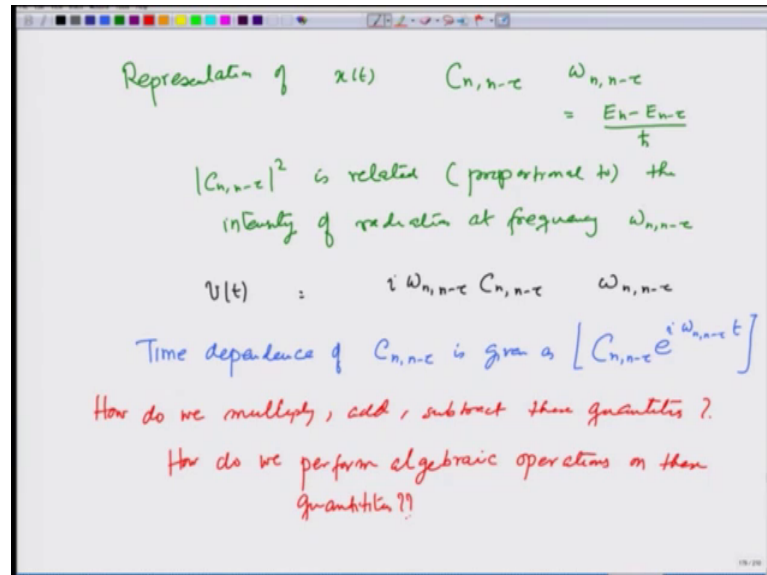 Representation of x(t) C_{n,n-τ} ω_{n,n-τ}
= \frac{E_n - E_{n-τ}}{ħ}
|C_{n,n-τ}|^2 is related (proportional to) the
intensity of radiation at frequency ω_{n,n-τ}
v(t) : i ω_{n,n-τ} C_{n,n-τ} ω_{n,n-τ}
Time dependence of C_{n,n-τ} is given as [C_{n,n-τ} e^{i ω_{n,n-τ} t}]
How do we multiply, add, subtract these quantities ?
How do we perform algebraic operations on these
quantities??